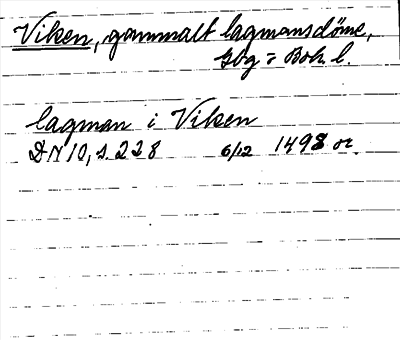 Viken, gammalt lagmansdöme,
Gbg = Boh l.
lagman i Viken
DN 10, s. 228 6/12 1498 or.